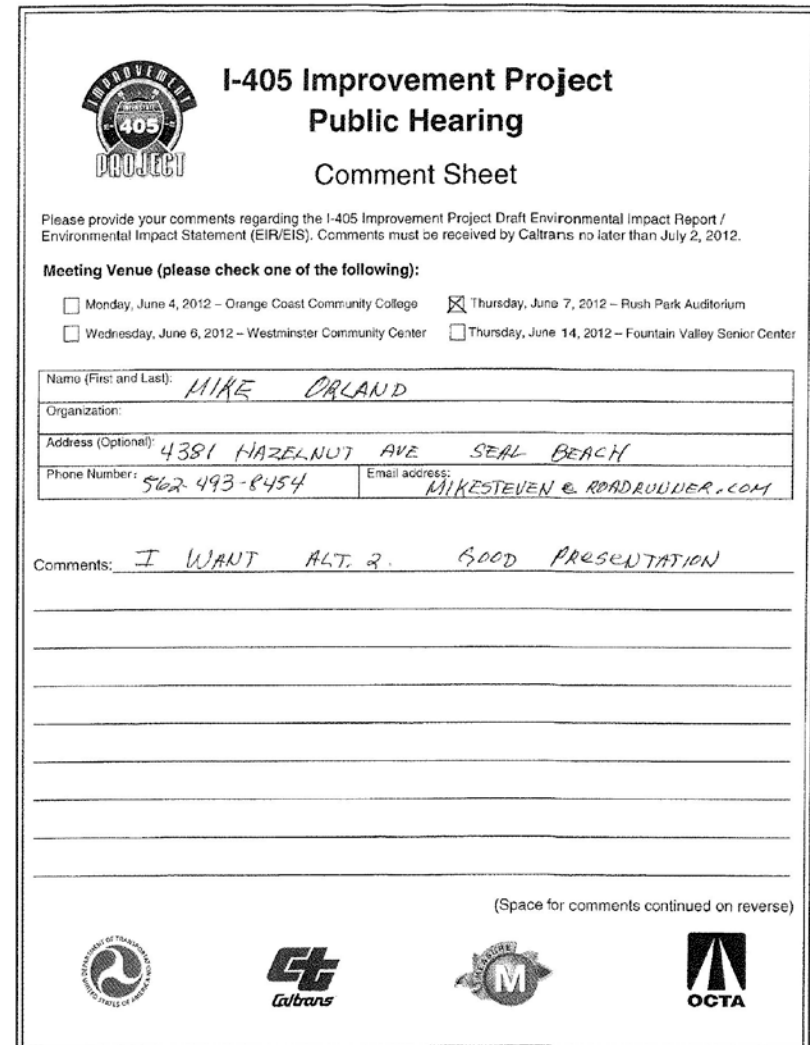 IMPROVEMENT
INTERSTATE
405
PROJECT
I-405 Improvement Project
Public Hearing
Comment Sheet
Please provide your comments regarding the I-405 Improvement Project Draft Environmental Impact Report /
Environmental Impact Statement (EIR/EIS). Comments must be received by Caltrans no later than July 2, 2012.
Meeting Venue (please check one of the following):
Monday, June 4, 2012 – Orange Coast Community College
Thursday, June 7, 2012 – Rush Park Auditorium
Wednesday, June 6, 2012 – Westminster Community Center
Thursday, June 14, 2012 – Fountain Valley Senior Center
Name (First and Last): MIKE ORLAND
Organization:
Address (Optional): 4381 HAZELNUT AVE SEAL BEACH
Phone Number: 562-493-8454 Email address: MIKESTEVEN@ROADRUNNER.COM
Comments: I WANT ALT. 2. GOOD PRESENTATION
(Space for comments continued on reverse)
DEPARTMENT OF TRANSPORTATION
UNITED STATES OF AMERICA
Ct
Caltrans
MEASURE
M
OCTA